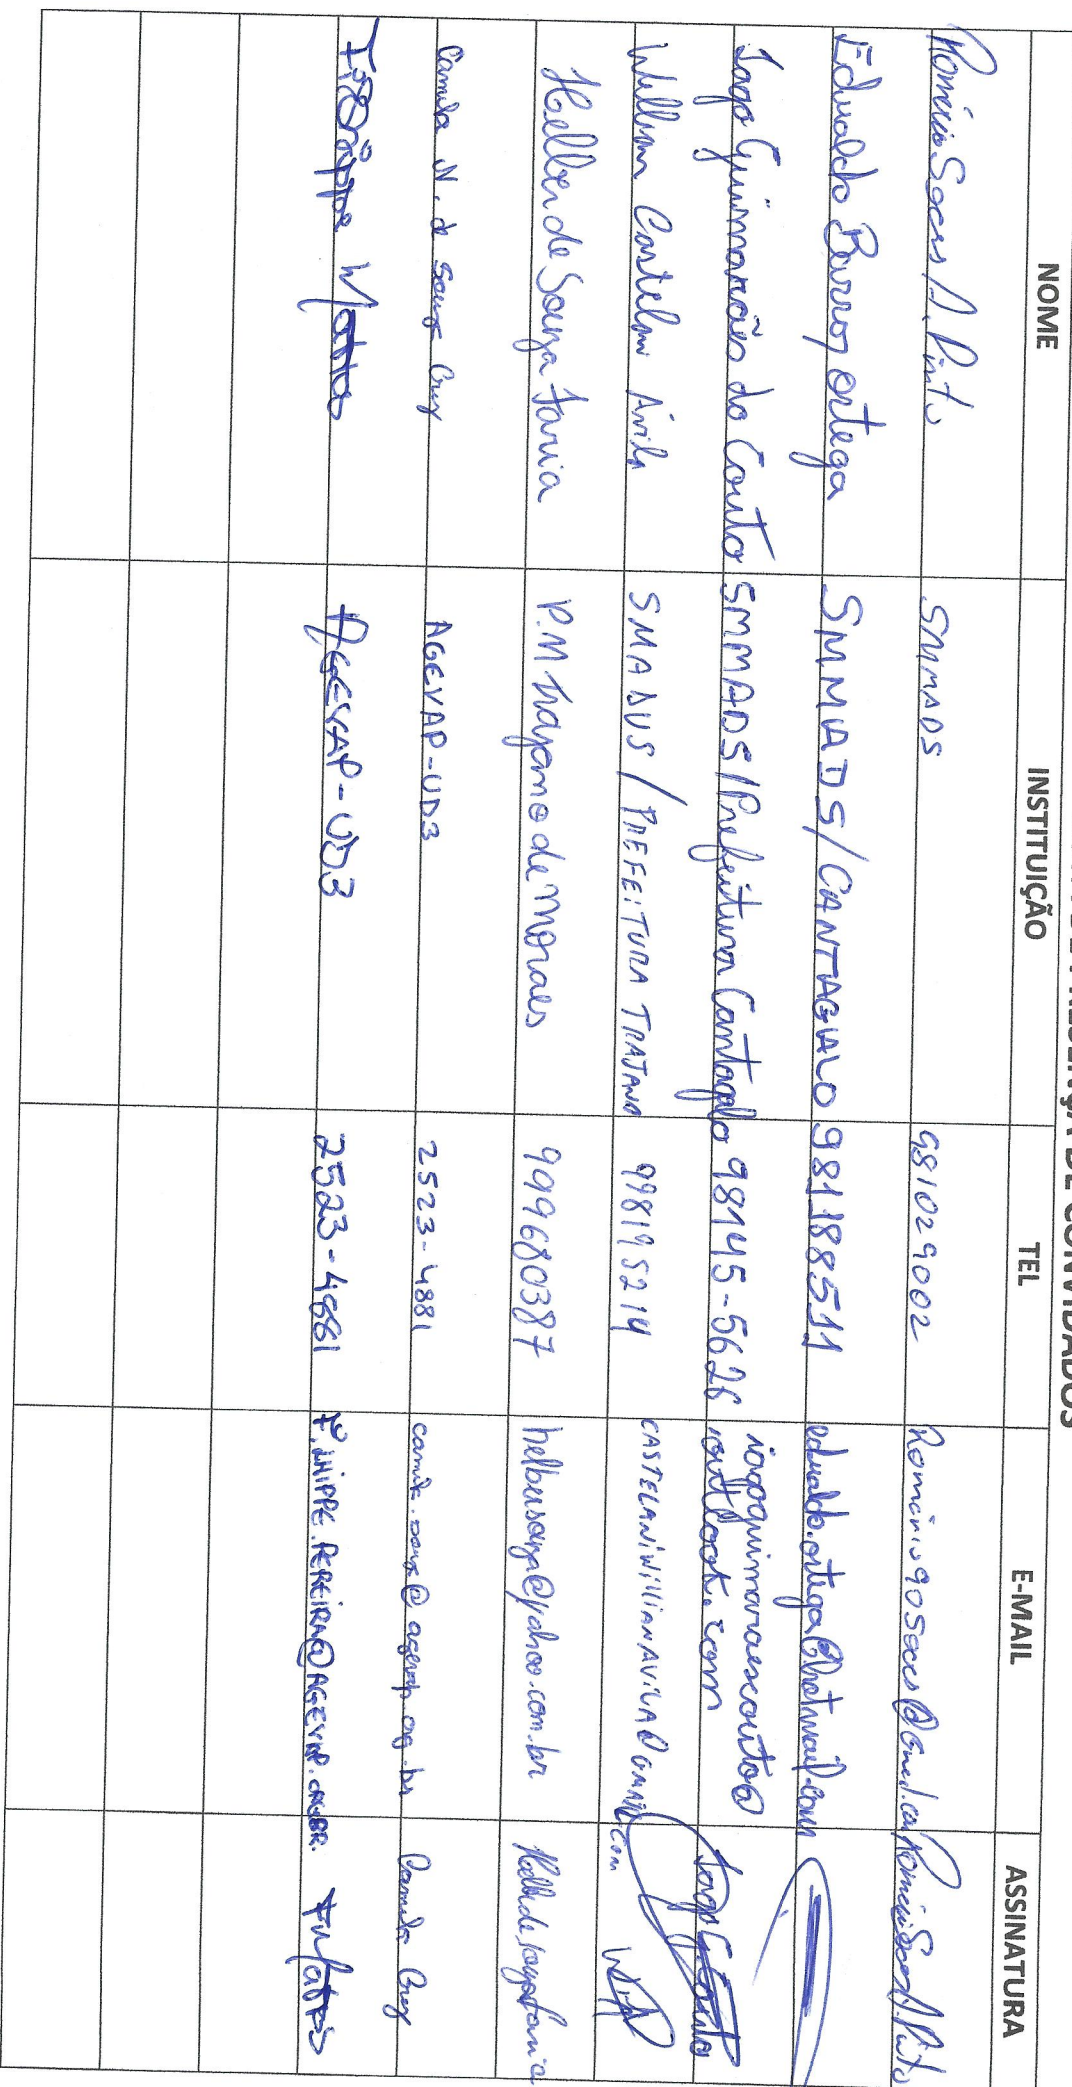 DE CONVIDADOS
NOME INSTITUIÇÃO TEL E-MAIL ASSINATURA
Romério Soares A. Pinto SMMADS 981029002 Romério Soares A. Pinto
Edualdo Barros Ortega SMMADS/CANTAGALO 981188511 edualdo.ortega@hotmail.com
Iago Guimarães do Couto SMMADS/Prefeitura Cantagalo 98145-5626 iagoguimaraescouto@
outlook.com Iago G Couto
Willian Castelani Ávila SMADUS/PREFEITURA TRAJANO 998195214 CASTELANIWILLIANAVILA@GMAIL.com
Helber de Souza Faria P.M Trajano de Moraes 999680387 helbersouza@yahoo.com.br Helber de Souza Faria
Camila N. de Souza Cruz AGEVAP-UD3 2523-4881 camila.souza@agevap.org.br Camila Cruz
Mattos AGEVAP-UD3 2523-4881